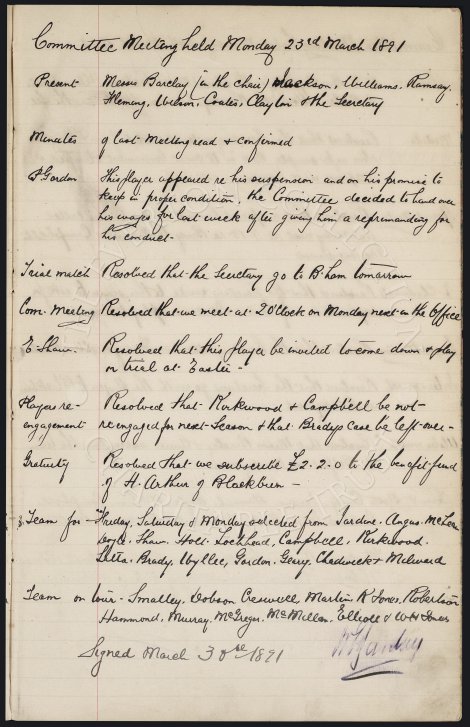 Committee Meeting held Monday 23rd March 1891
Present Messrs Barclay (in the chair) Jackson, Williams, Ramsay,
Fleming, Wilson, Coates, Clayton & the Secretary
Minutes of last Meeting read & confirmed
P Gordon This player appeared re his suspension and on his promise to
keep in proper condition, the Committee decided to hand over
his wages for last week after giving him a reprimanding for
his conduct -
Trial match Resolved that the Secretary go to B'ham tomorrow
Com. Meeting Resolved that we meet at 2 O'Clock on Monday next in the Office
E. Shaw. Resolved that this player be invited to come down & play
on trial at Easter -
Players re- Resolved that Kirkwood & Campbell be not
engagement re-engaged for next Season & that Bradys case be left over -
Gratuity Resolved that we subscribe £2-2-0 to the benefit fund
of H. Arthur of Blackburn -
Team for - Friday, Saturday & Monday selected from Jardine, Angus, McLean
Doyle, Shaw, Holt, Lochhead, Campbell, Kirkwood.
Latta, Brady, Wyllie, Gordon, Geary, Chadwick & Milward
Team on tour - Smalley, Dobson Cresswell, Martin R Jones, Robertson
Hammond, Murray, McGregor, McMillan, Elliott & W H Jones
Signed March 30th 1891